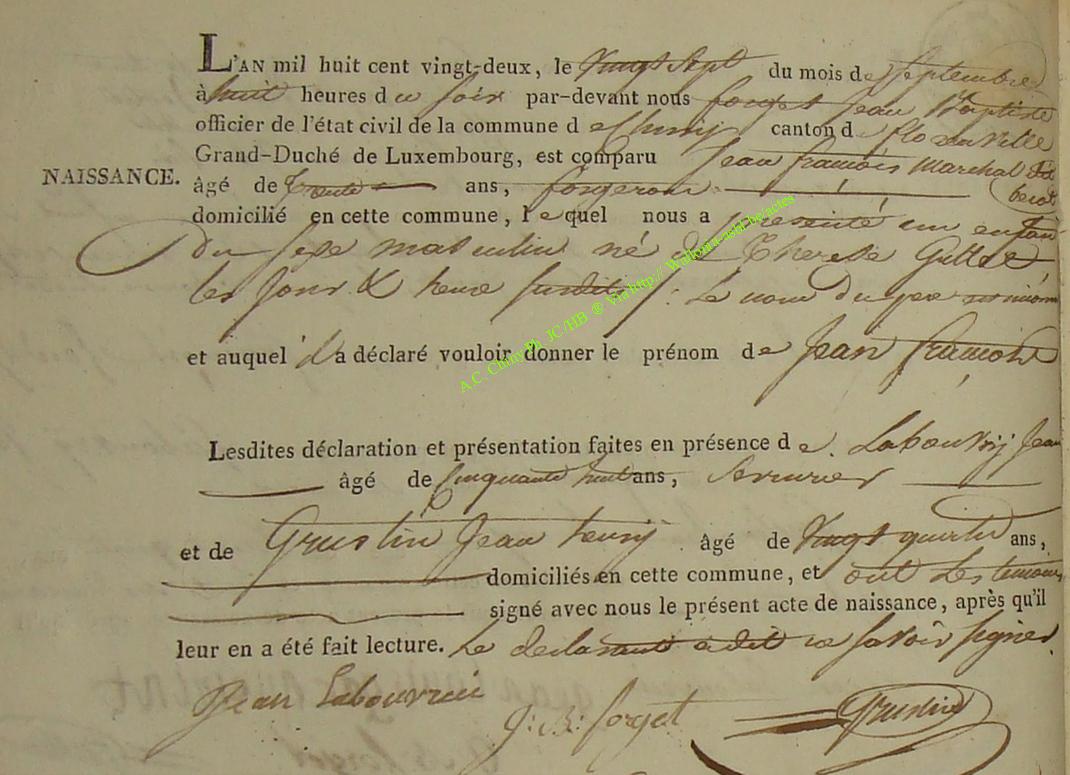 L'AN mil huit cent vingt-deux, le Vingt Sept du mois de Septembre
à huit heures du soir par-devant nous forget Jean Baptiste
officier de l'état civil de la commune de Chiny canton de florenville
Grand-Duché de Luxembourg, est comparu Jean francois Marchal dit
NAISSANCE.
âgé de Trente ans, forgeron
domicilié en cette commune, lequel nous a présenté un enfan
Du sexe masculin né de Therese
les jour & heure susdits Le nom du
et auquel il a déclaré vouloir donner le prénom de Jean francois
Lesdites déclaration et présentation faites en présence de Labouxij Jean
âgé de Cinquante huit ans, Serurier
et de Grustin Jean henrij âgé de Vingt quatre ans,
domiciliés en cette commune, et ont les temoins
signé avec nous le présent acte de naissance, après qu'il
leur en a été fait lecture. Le declarant a dit ne savoir signer.
Jean J: B: forget Grustin
A.C. Chiny Ph JC/HB ® Via http://Wallonia-asbl.be/actes